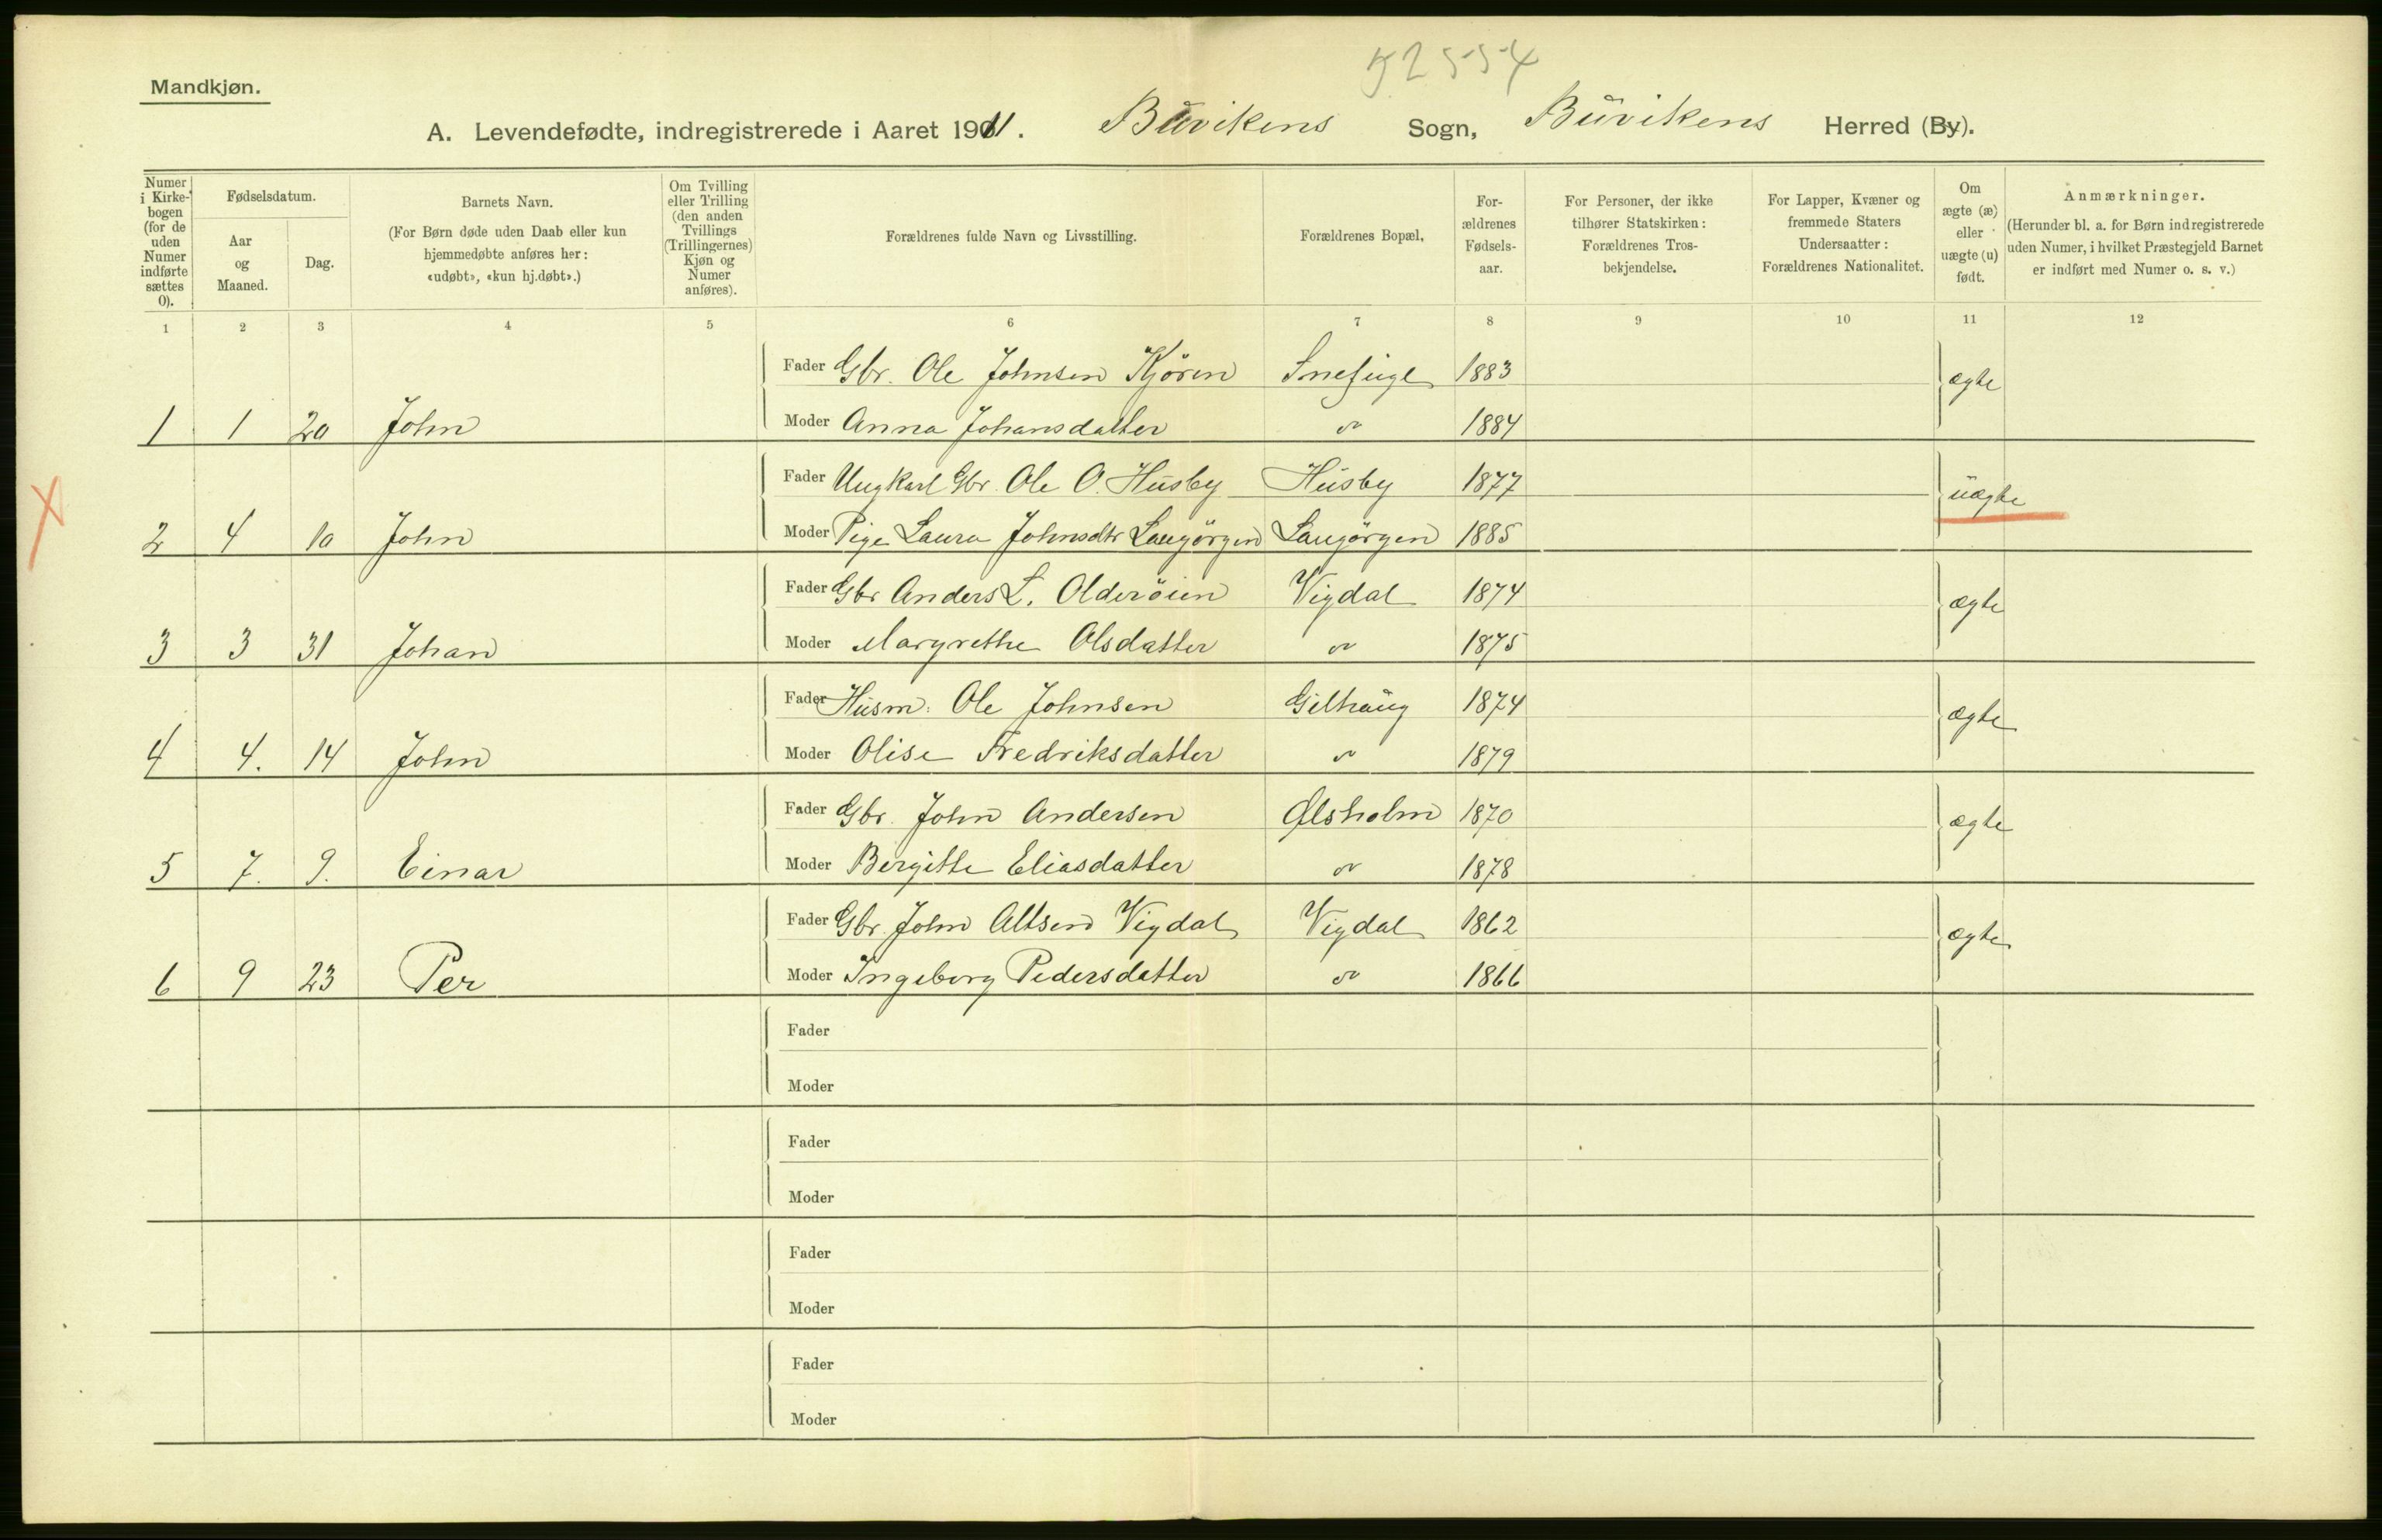 52554
Mandkjøn.
A. Levendefødte, indregistrerede i Aaret 1911. Buvikens Sogn, Buvikens Herred (By).
Numer i Kirke-bogen (for de uden Numer indførte sættes 0).
Fødselsdatum.
Aar og Maaned.
Dag.
Barnets Navn.
(For Børn døde uden Daab eller kun hjemmedøbte anføres her: «udøbt», «kun hj.døbt».)
Om Tvilling eller Trilling (den anden Tvillings (Trillingernes) Kjøn og Numer anføres).
Forældrenes fulde Navn og Livsstilling.
Forældrenes Bopæl,
For-ældrenes Fødsels-aar.
For Personer, der ikke tilhører Statskirken: Forældrenes Tros-bekjendelse.
For Lapper, Kvæner og fremmede Staters Undersaatter: Forældrenes Nationalitet.
Om ægte (æ) eller uægte (u) født.
Anmærkninger.
(Herunder bl. a. for Børn indregistrerede uden Numer, i hvilket Præstegjeld Barnet er indført med Numer o. s. v.)
1 2 3 4 5 6 7 8 9 10 11 12
Fader Gbr. Ole Johnsen Kjören Snefugl 1883 ægte
1 1 20 John Moder Anna Johansdatter " 1884
Fader Ungkarl Gbr. Ole O. Husby Husby 1877 uægte
2 4 10 John Moder Pige Laura Johnsdtr Langörgen Langörgen 1885
Fader Gbr Anders L. Olderöien Vigdal 1874 ægte
3 3 31 Johan Moder Margrethe Olsdatter " 1875
Fader Husm. Ole Johnsen Gilhaug 1874 ægte
4 4. 14 John Moder Olise Fredriksdatter " 1879
Fader Gbr. John Andersen Ølsholm 1870 ægte
5 7. 9. Einar Moder Bergitte Eliasdatter " 1878
Fader Gbr. John Altsen Vigdal Vigdal 1862 ægte
6 9 23 Per Moder Ingeborg Pedersdatter " 1866
Fader
Moder
Fader
Moder
Fader
Moder
Fader
Moder